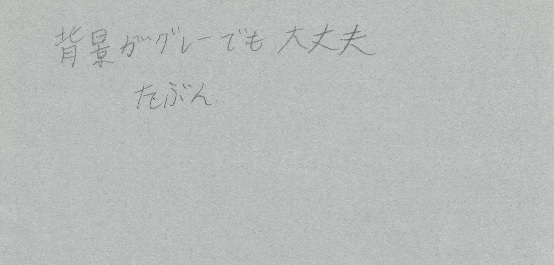 背景がグレーでも大丈夫
たぶん